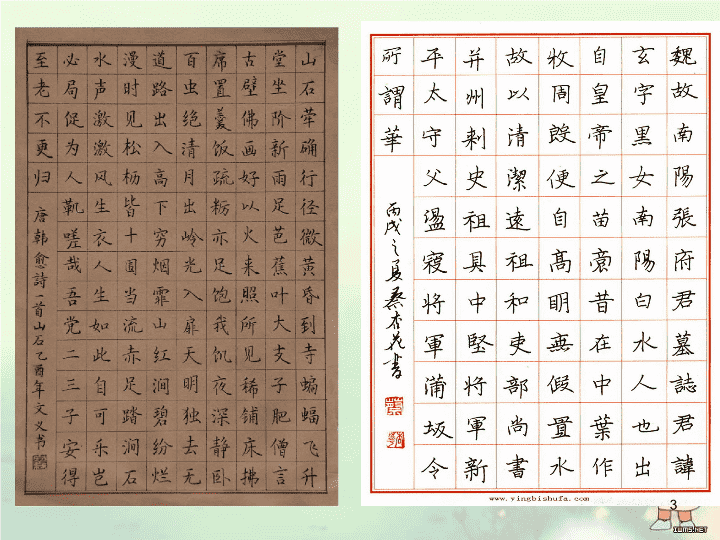 山石荦确行径微黄昏到寺蝙蝠飞升
堂坐阶新雨足芭蕉叶大支子肥僧言
古壁佛画好以火来照所见稀铺床拂
席置羹饭疏粝亦足饱我饥夜深静卧
百虫绝清月出岭光入扉天明独去无
道路出入高下穷烟霏山红涧碧纷烂
漫时见松枥皆十围当流赤足踏涧石
水声激激风生衣人生如此自可乐岂
必局促为人靰嗟哉吾党二三子安得
至老不更归
唐韩愈詩一首山石乙酉年文义书
魏故南陽張府君墓誌君諱
玄字黑女南陽白水人也出
自皇帝之苗裔昔在中葉作
牧周殷便自高明無假置水
故以清潔遠祖和吏部尚書
并州刺史祖具中堅將軍新
平太守父盪寇將軍蒲坂令
所謂華
丙戌之夏蔡杏花書
www.yingbishufa.com
3